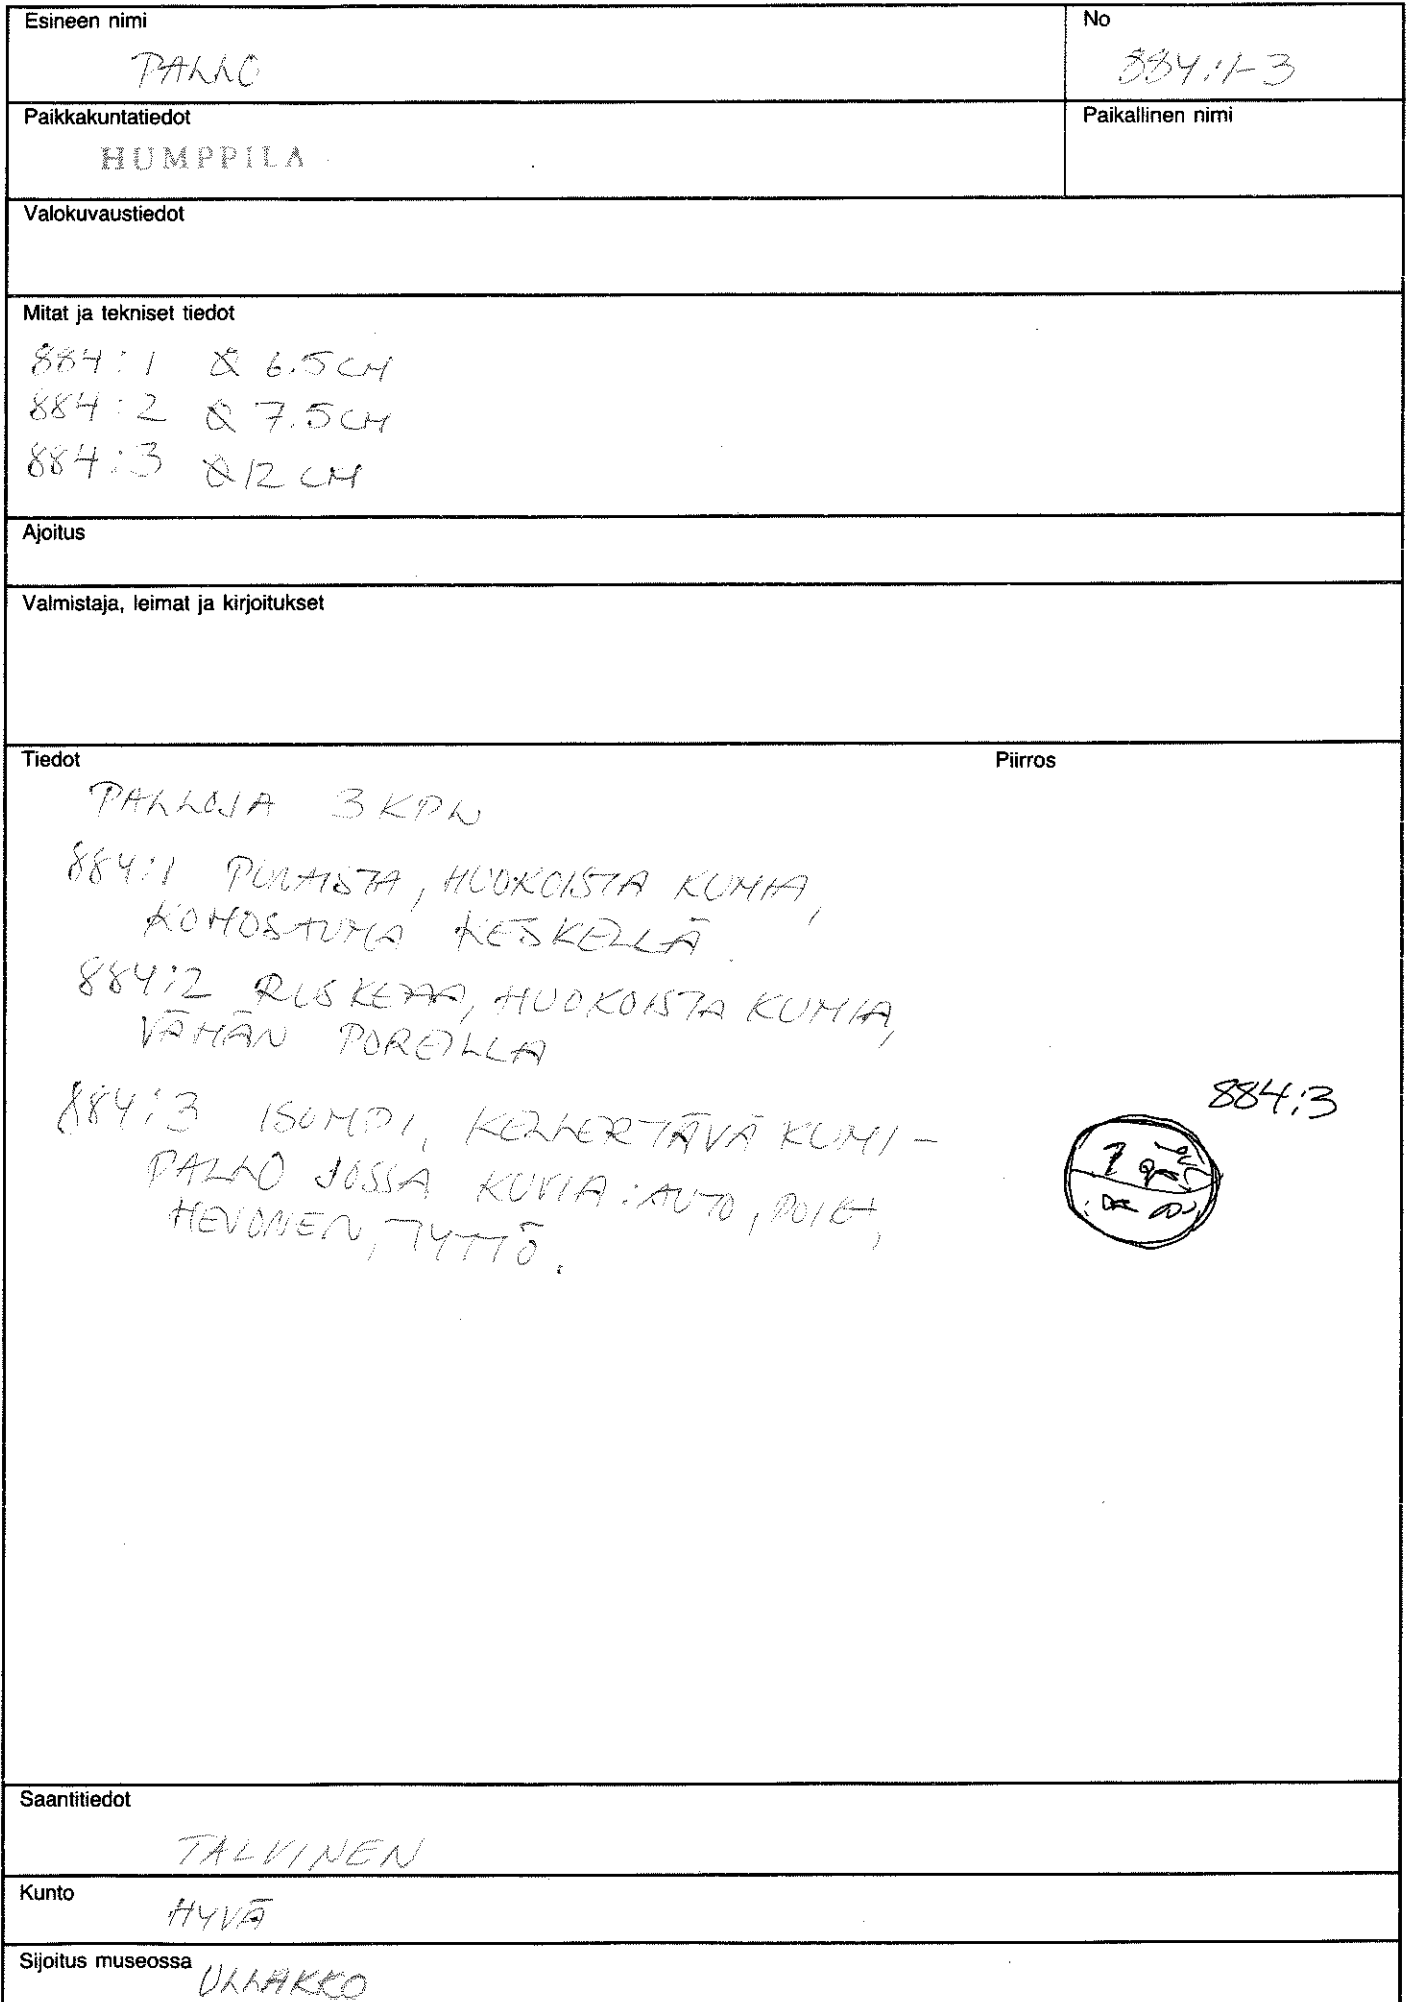 Esineen nimi
PALLO
No
884:1-3
Paikkakuntatiedot
HUMPPILA
Paikallinen nimi
Valokuvaustiedot
Mitat ja tekniset tiedot
884:1 Ø 6.5 CM
884:2 Ø 7.5 CM
884:3 Ø 12 CM
Ajoitus
Valmistaja, leimat ja kirjoitukset
Tiedot
Piirros
PALLOJA 3 KPL
884:1 PUNAISTA, HUOKOISTA KUMIA,
KOHOSAUMA KESKELLÄ.
884:2 RUSKEAA, HUOKOISTA KUMIA,
VÄHÄN POREILLA
884:3 ISOMPI, KELLERTÄVÄ KUMI-
PALLO JOSSA KUVIA: AUTO, POIKA,
HEVONEN, TYTTÖ.
884:3
Saantitiedot
TALVINEN
Kunto
HYVÄ
Sijoitus museossa
ULLAKKO